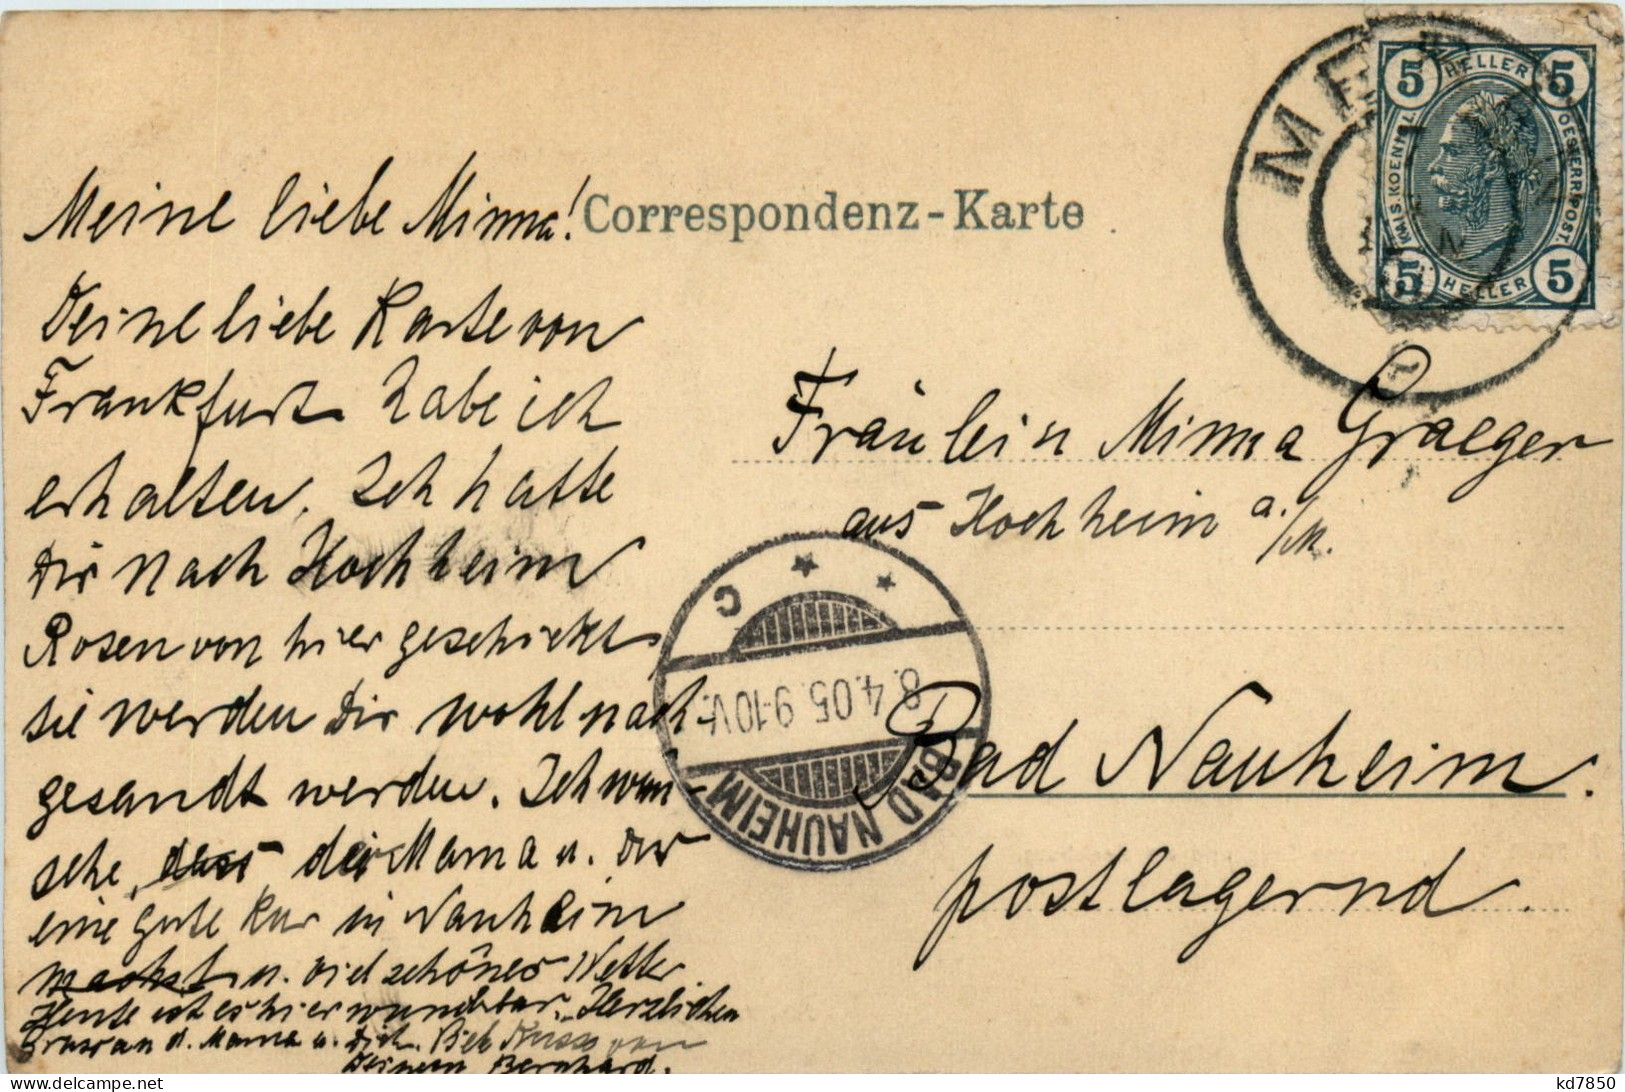 Meine liebe Minna!
Correspondenz-Karte
Deine liebe Karte von
Frankfurt habe ich
erhalten. Ich hatte
Dir nach Hochheim
Rosen von hier geschickt
sie werden Dir wohl nach-
gesandt werden. Ich wün-
sche, dass der Mama u. Dir
eine gute Kur in Nauheim
machst u. viel schönes Wetter
Heute ist es hier wunderbar. Herzlichen
Gruss an d. Mama u. Dich. Kuss von
Deinem Bernhard.
MER
5 HELLER 5
KAIS. KOENIGL. OESTERR. POST.
5 HELLER 5
Fräulein Minna Graeger
aus Hochheim a./M.
Bad Nauheim.
postlagernd.
C
8.4.05. 9-10V.
BAD NAUHEIM
delcampe.net
kd7850